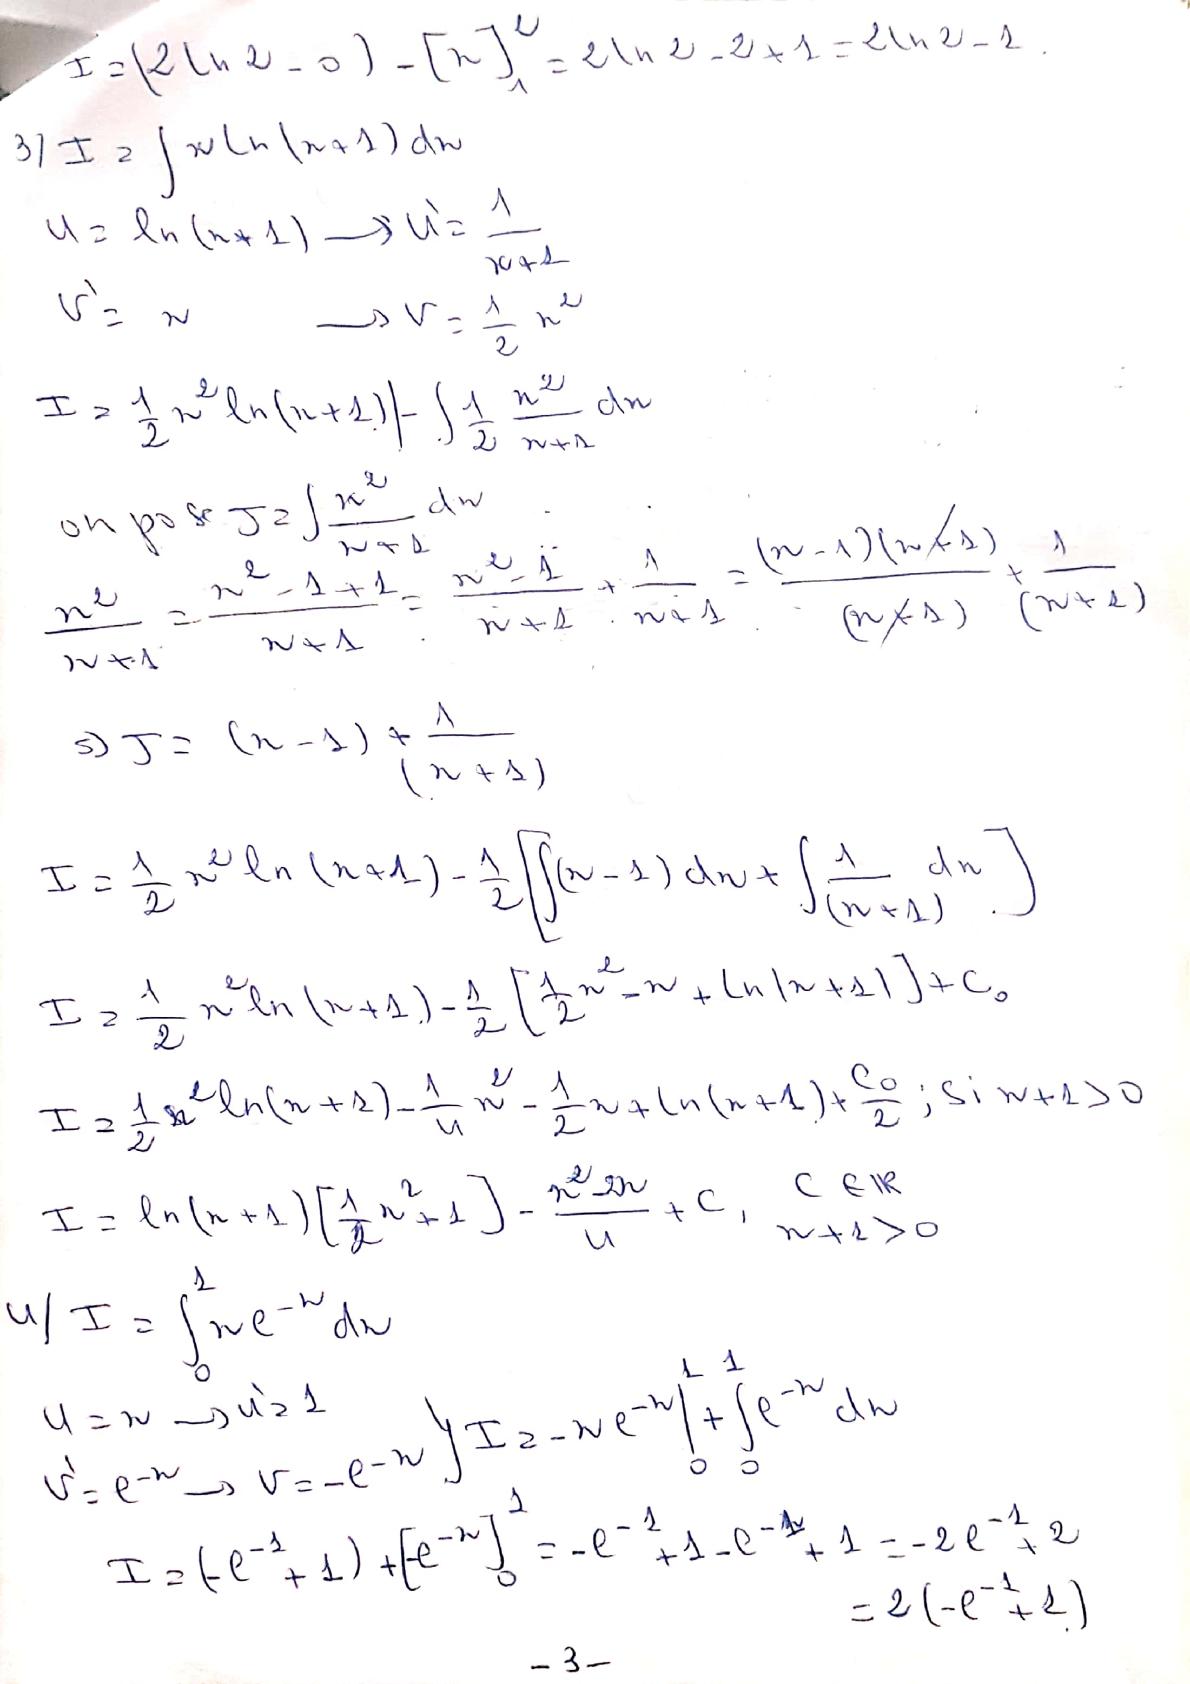 I = (2 ln 2 - 0) - [x]₁² = 2 ln 2 - 2 + 1 = 2 ln 2 - 1.
3/ I = ∫ x ln(x+1) dx
u = ln(x+1) → u' = 1/(x+1)
v' = x → v = 1/2 x²
I = 1/2 x² ln(x+1) - ∫ 1/2 x²/(x+1) dx
on pose J = ∫ x²/(x+1) dx
x²/(x+1) = (x²-1+1)/(x+1) = (x²-1)/(x+1) + 1/(x+1) = (x-1)(x+1)/(x+1) + 1/(x+1)
=> J = (x-1) + 1/(x+1)
I = 1/2 x² ln(x+1) - 1/2 [∫(x-1) dx + ∫ 1/(x+1) dx]
I = 1/2 x² ln(x+1) - 1/2 [1/2 x² - x + ln|x+1|] + C₀
I = 1/2 x² ln(x+1) - 1/4 x² - 1/2 x + ln(x+1) + C₀/2 ; si x+1>0
I = ln(x+1) [1/2 x² + 1] - (x² 2x)/4 + C, C ∈ ℝ x+1>0
4/ I = ∫₀¹ x e^-x dx
u = x → u' = 1
v' = e^-x → v = -e^-x } I = -x e^-x |₀¹ + ∫₀¹ e^-x dx
I = (-e^-1 + 1) + [-e^-x]₀¹ = -e^-1 + 1 - e^-1 + 1 = -2e^-1 + 2
= 2(-e^-1 + 1)
- 3 -